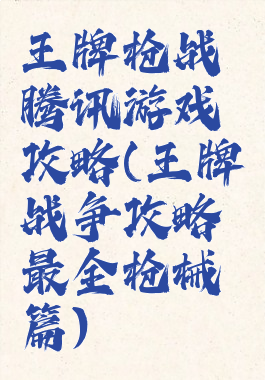 王牌枪战
腾讯游戏
攻略(王牌
战争攻略
最全枪械
篇)